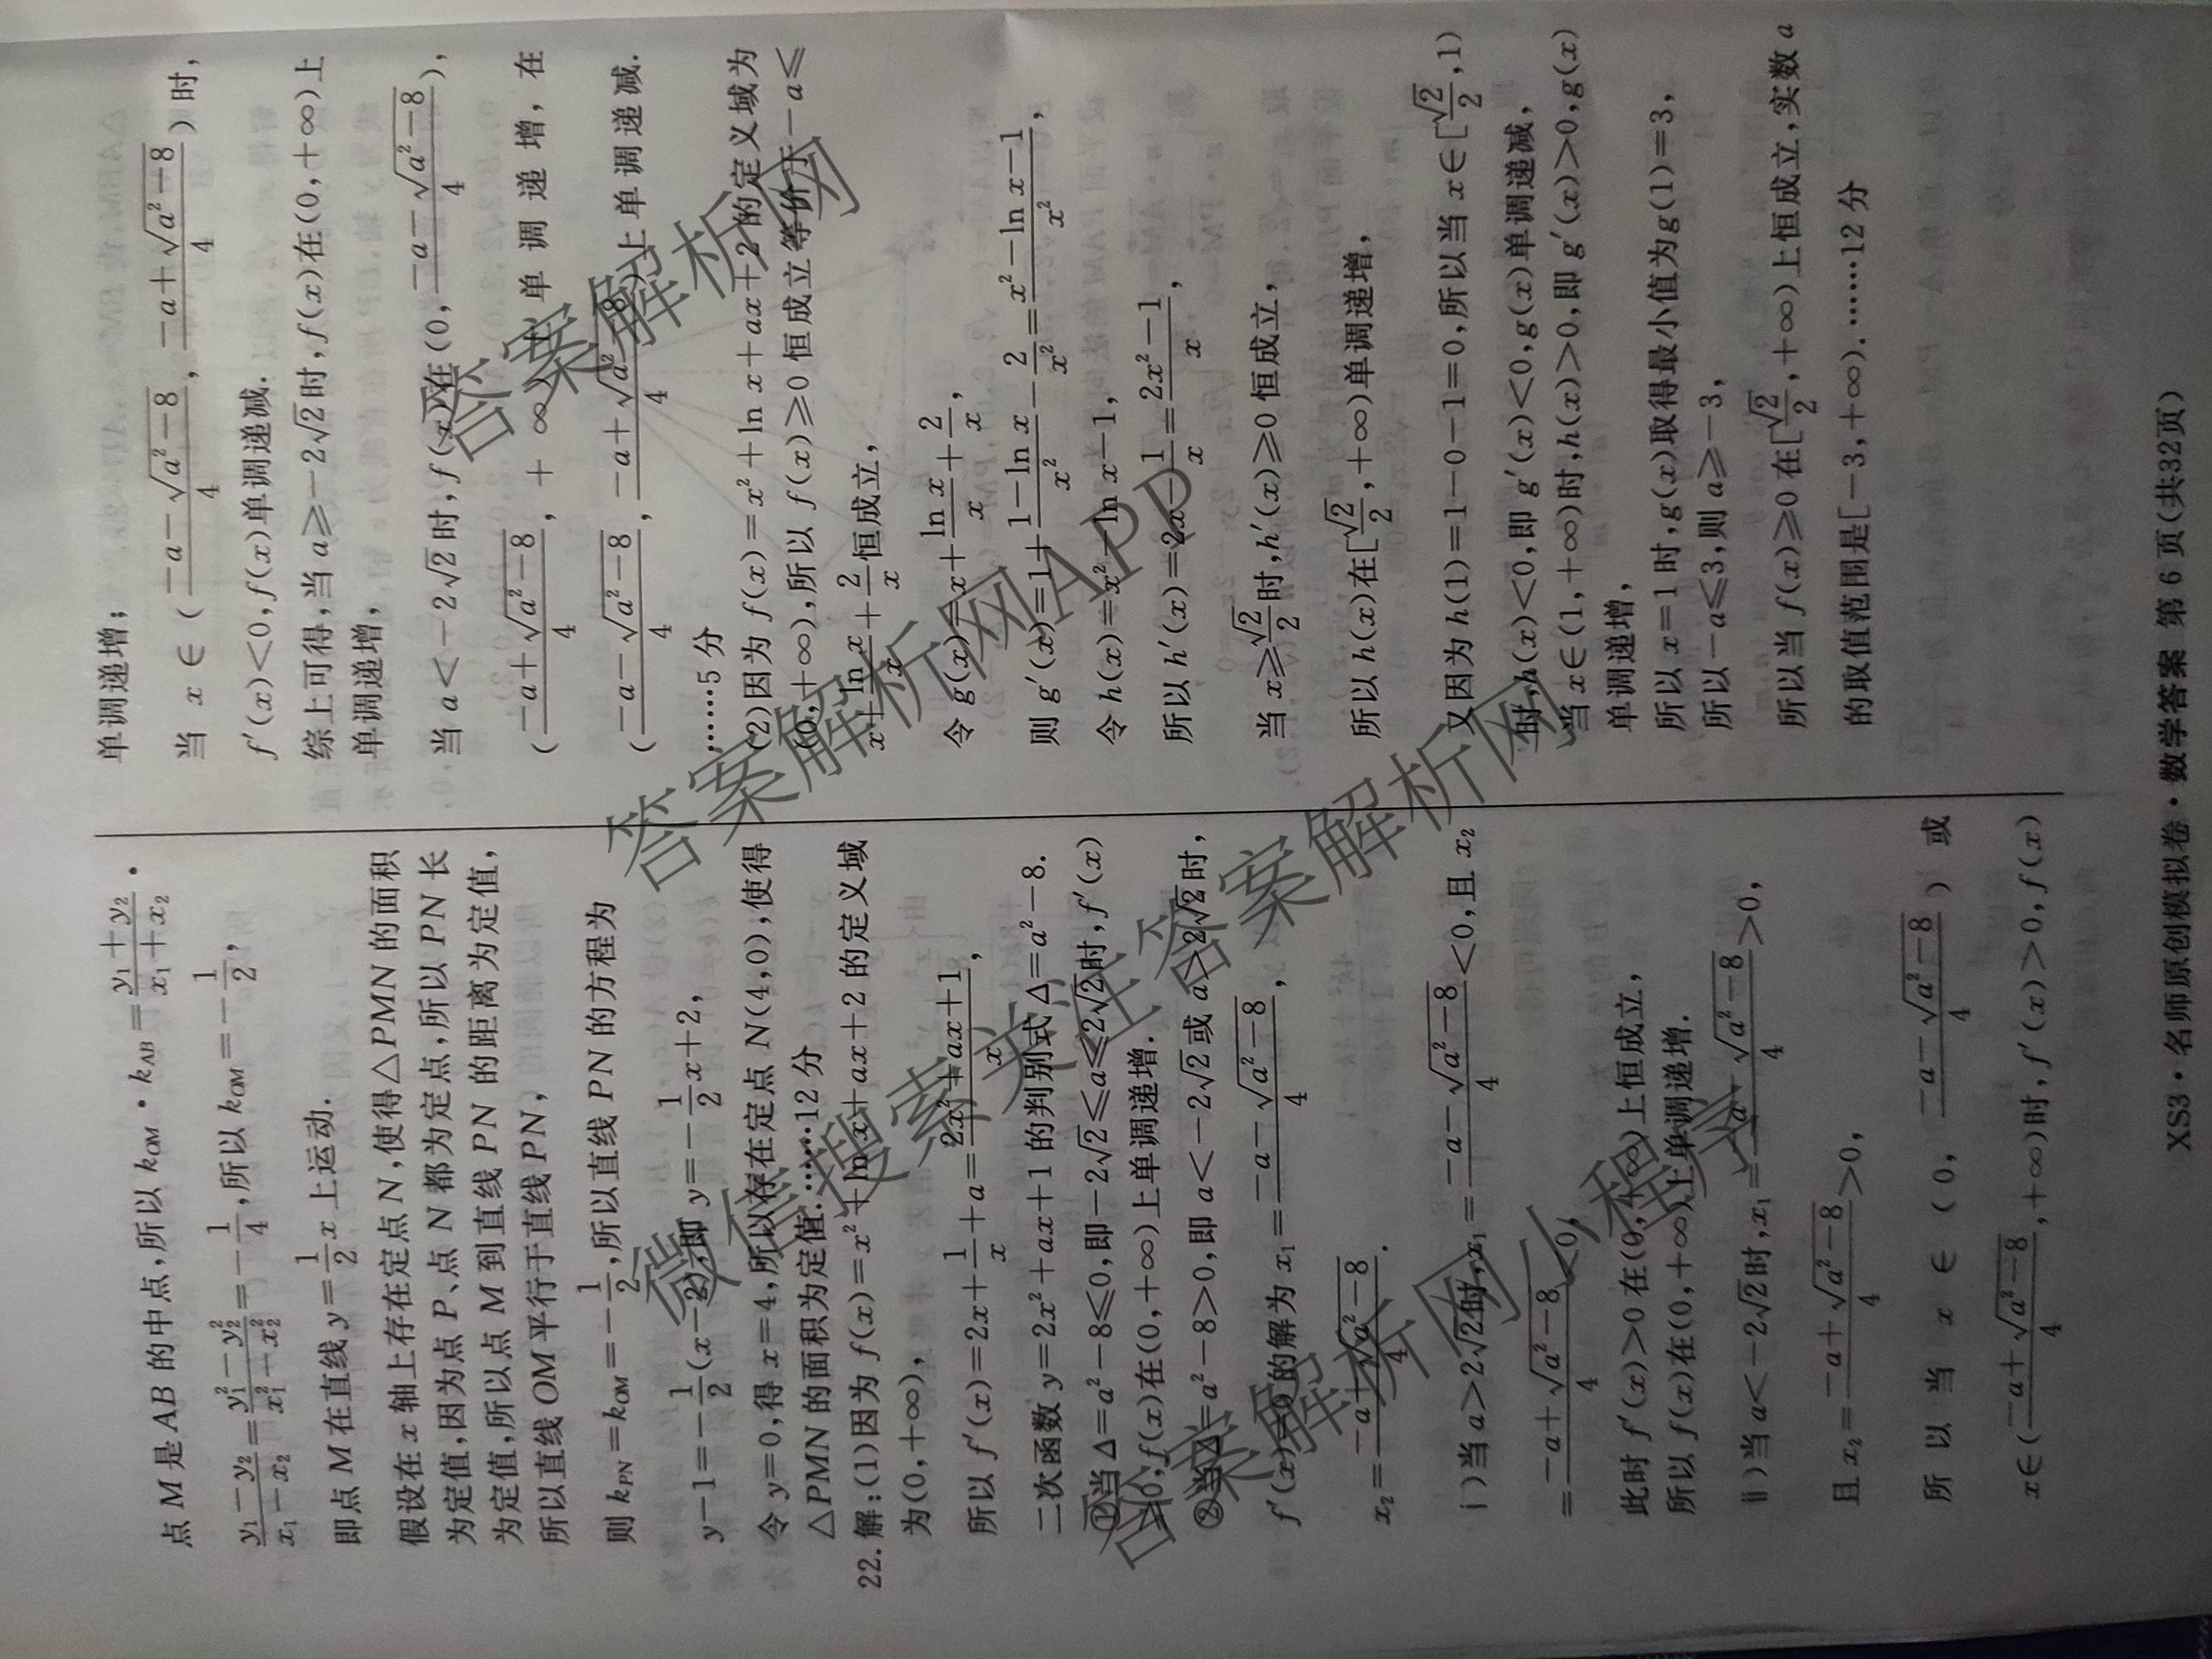 点 M 是 AB 的中点,所以 k_{OM}·k_{AB}=\frac{y_1+y_2}{x_1+x_2}·
\frac{y_1-y_2}{x_1-x_2}=\frac{y_1^2-y_2^2}{x_1^2-x_2^2}=-\frac{1}{4},所以 k_{OM}=-\frac{1}{2},
即点 M 在直线 y=\frac{1}{2}x 上运动.
假设在 x 轴上存在定点 N,使得△PMN 的面积
为定值,因为点 P、点 N 都为定点,所以 PN 长
为定值,所以点 M 到直线 PN 的距离为定值,
所以直线 OM 平行于直线 PN,
则 k_{PN}=k_{OM}=-\frac{1}{2},所以直线 PN 的方程为
y-1=-\frac{1}{2}(x-2),即 y=-\frac{1}{2}x+2,
令 y=0,得 x=4,所以存在定点 N(4,0),使得
△PMN 的面积为定值.……12 分
22.解:(1)因为 f(x)=x^2+ln x+ax+2 的定义域
为(0,+∞),
所以 f′(x)=2x+\frac{1}{x}+a=\frac{2x^2+ax+1}{x},
二次函数 y=2x^2+ax+1 的判别式 Δ=a^2-8.
①当 Δ=a^2-8≤0,即-2\sqrt{2}≤a≤2\sqrt{2}时,f′(x)
≥0,f(x)在(0,+∞)上单调递增.
②当 Δ=a^2-8>0,即 a<-2\sqrt{2}或 a>2\sqrt{2}时,
f′(x)=0 的解为 x_1=\frac{-a-\sqrt{a^2-8}}{4},
x_2=\frac{-a+\sqrt{a^2-8}}{4}.
ⅰ)当 a>2\sqrt{2}时,x_1=\frac{-a-\sqrt{a^2-8}}{4}<0,且 x_2
=\frac{-a+\sqrt{a^2-8}}{4}<0,
此时 f′(x)>0 在(0,+∞)上恒成立,
所以 f(x)在(0,+∞)上单调递增.
ⅱ)当 a<-2\sqrt{2}时,x_1=\frac{-a-\sqrt{a^2-8}}{4}>0,
且 x_2=\frac{-a+\sqrt{a^2-8}}{4}>0,
所以当 x∈(0,\frac{-a-\sqrt{a^2-8}}{4})或
x∈(\frac{-a+\sqrt{a^2-8}}{4},+∞)时,f′(x)>0,f(x)
单调递增;
当 x∈(\frac{-a-\sqrt{a^2-8}}{4},\frac{-a+\sqrt{a^2-8}}{4})时,
f′(x)<0,f(x)单调递减.
综上可得,当 a≥-2\sqrt{2}时,f(x)在(0,+∞)上
单调递增,
当 a<-2\sqrt{2}时,f(x)在(0,\frac{-a-\sqrt{a^2-8}}{4}),
(\frac{-a+\sqrt{a^2-8}}{4},+∞)上单调递增,在
(\frac{-a-\sqrt{a^2-8}}{4},\frac{-a+\sqrt{a^2-8}}{4})上单调递减.
……5 分
(2)因为 f(x)=x^2+ln x+ax+2 的定义域为
(0,+∞),所以 f(x)≥0 恒成立等价于-a≤
x+\frac{ln x}{x}+\frac{2}{x}恒成立,
令 g(x)=x+\frac{ln x}{x}+\frac{2}{x},
则 g′(x)=1+\frac{1-ln x}{x^2}-\frac{2}{x^2}=\frac{x^2-ln x-1}{x^2},
令 h(x)=x^2-ln x-1,
所以 h′(x)=2x-\frac{1}{x}=\frac{2x^2-1}{x},
当 x≥\frac{\sqrt{2}}{2}时,h′(x)≥0 恒成立,
所以 h(x)在[\frac{\sqrt{2}}{2},+∞)单调递增,
又因为 h(1)=1-0-1=0,所以当 x∈[\frac{\sqrt{2}}{2},1)
时,h(x)<0,即 g′(x)<0,g(x)单调递减,
当 x∈(1,+∞)时,h(x)>0,即 g′(x)>0,g(x)
单调递增,
所以 x=1 时,g(x)取得最小值为g(1)=3,
所以-a≤3,则 a≥-3,
所以当 f(x)≥0 在[\frac{\sqrt{2}}{2},+∞)上恒成立,实数 a
的取值范围是[-3,+∞).……12 分
XS3·名师原创模拟卷·数学答案 第 6 页(共32页)
答案解析网
答案解析网APP
微信搜索关注答案解析网
答案解析网小程序